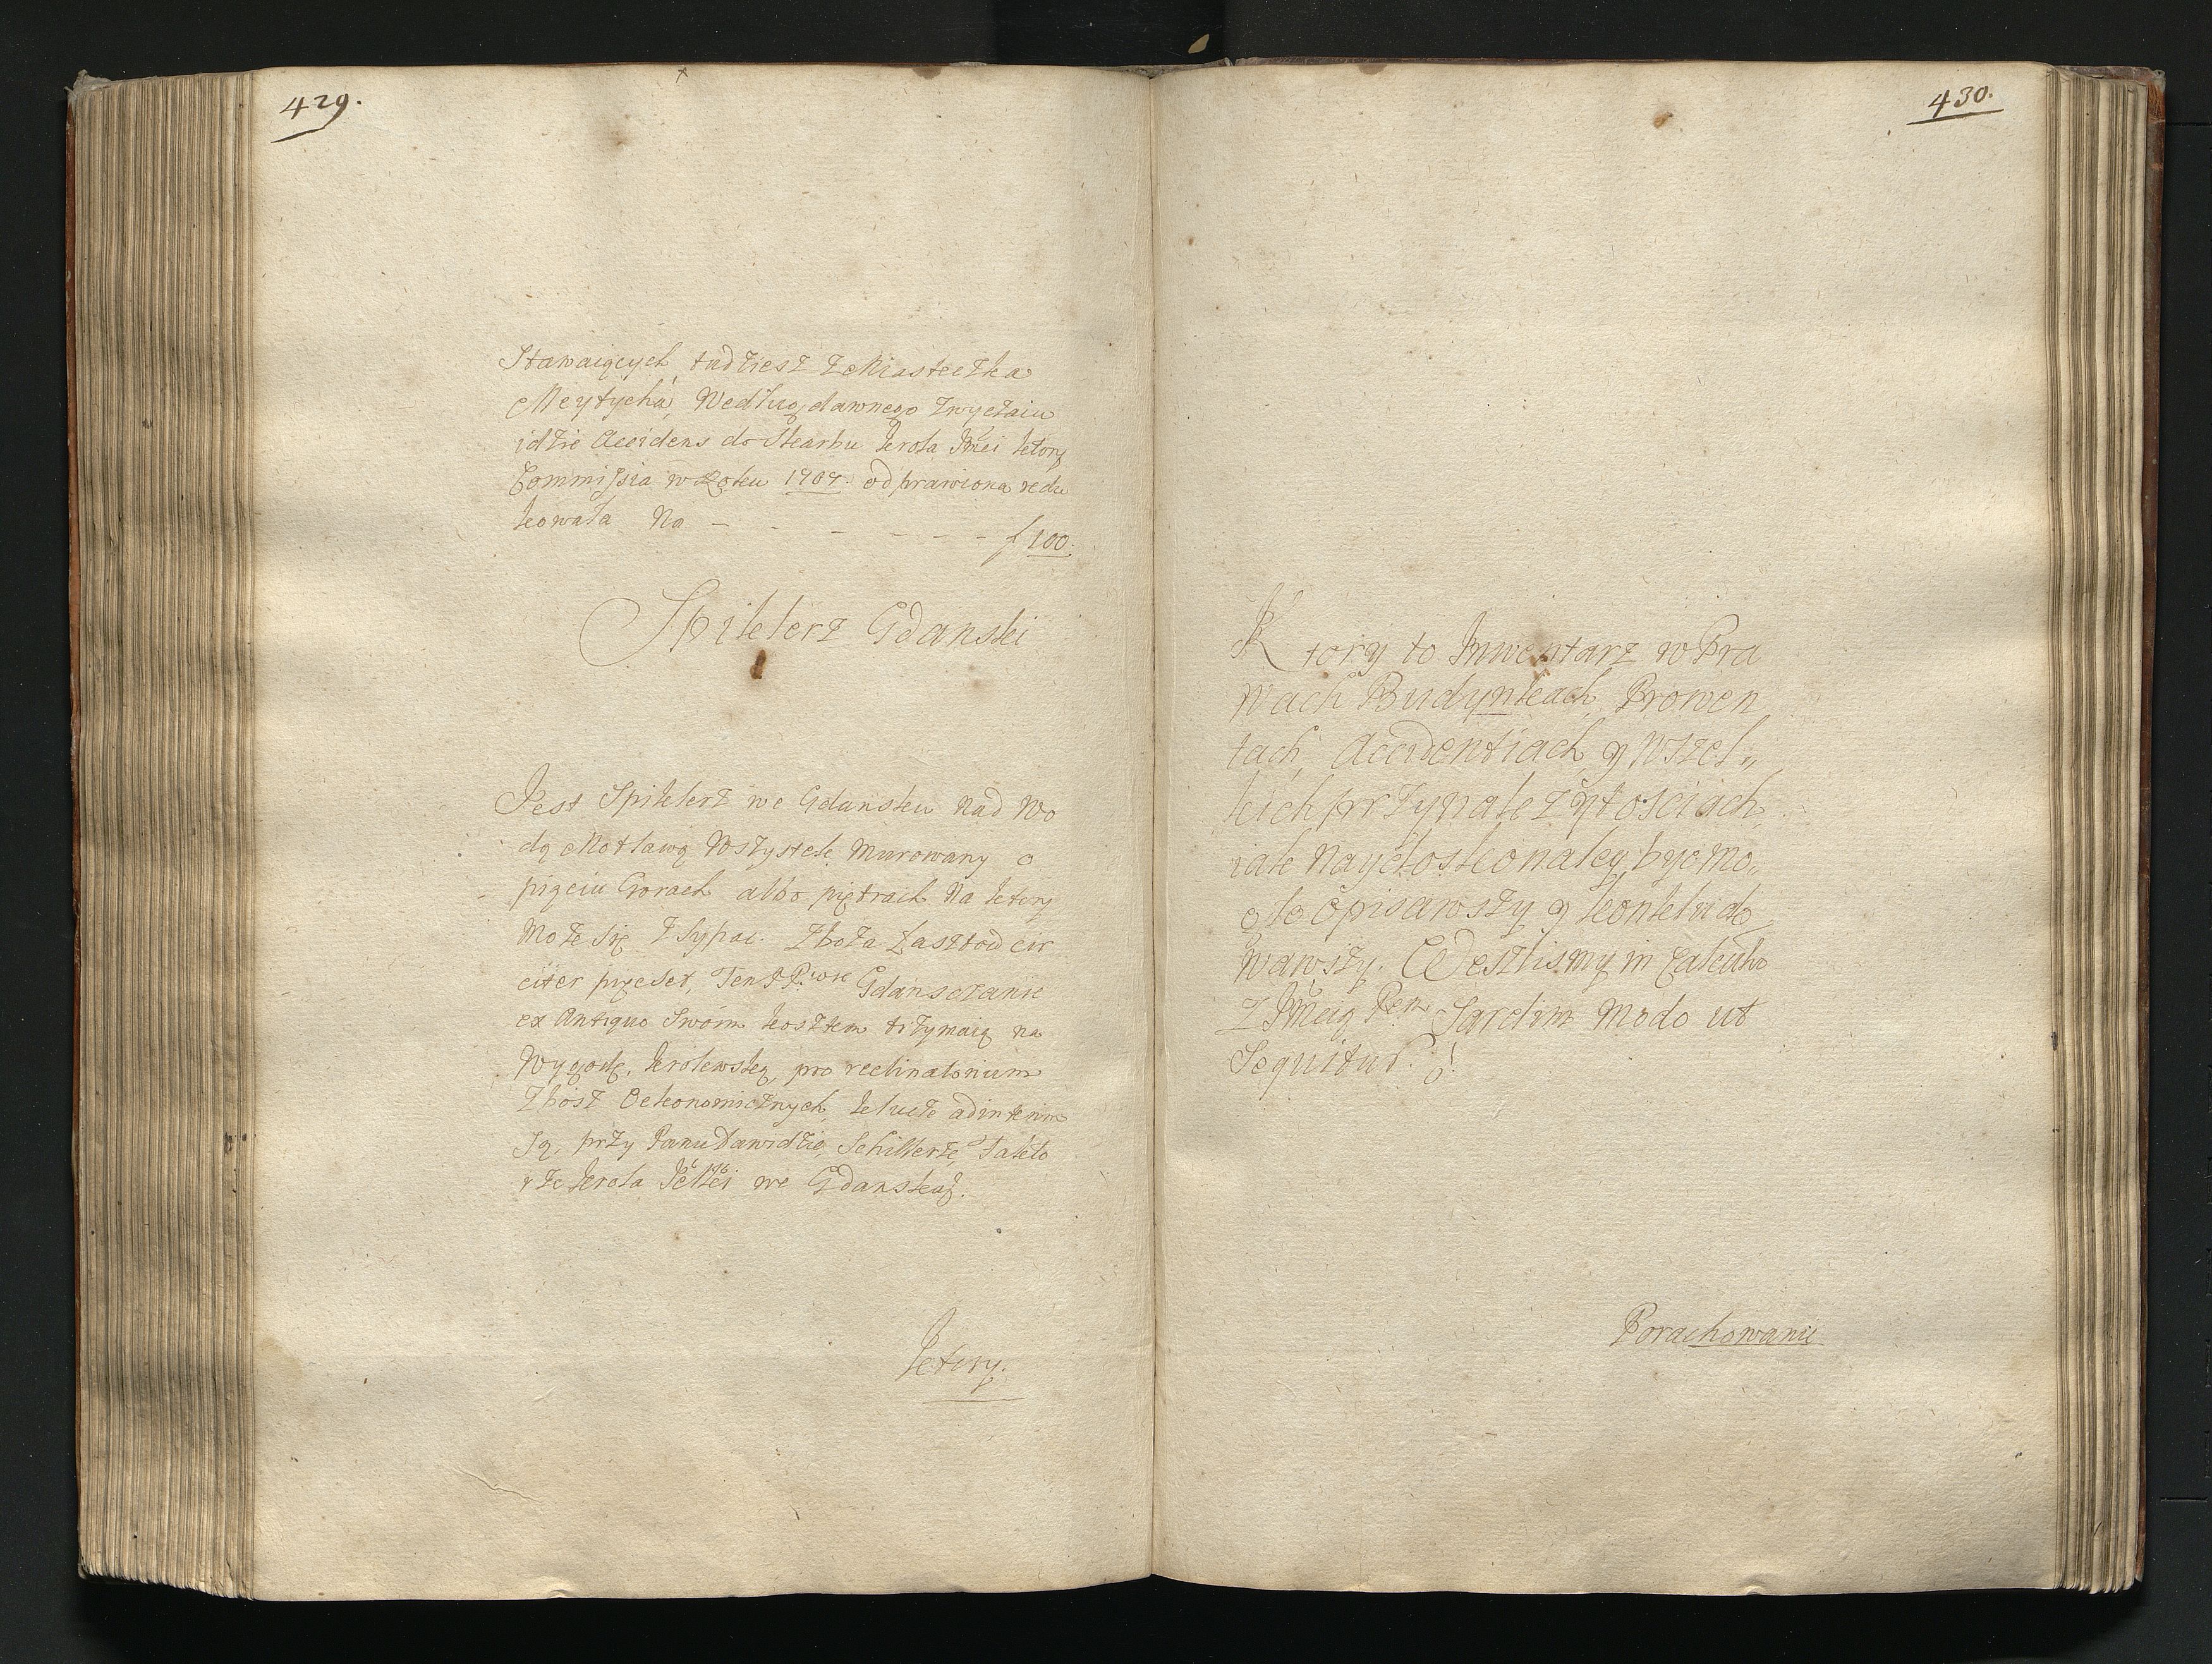 429.
Stawaiących tudziesz z Miasteczka
Meytychá, Według dawnego zwyczaiu
idzie Accidens do Skarbu Krola Jmci ktory
Commissia w Roku 1707. odprawiona redu
kowała Na - - - - - - - f 100.
Spiklerz Gdanski
Jest Spiklerz we Gdansku nad Wo
dą Motławą Wszystek Murowany o
pięciu Gorach albo piętrach Na ktory
Może się zsypac. Zboża Łasztow cir
citer pięcset, Ten Gdanszczanie
ex Antiquo Swoim kosztem trzymaią na
Wygodę, krolewską, pro reclinatorium
Zbosz Oekonomicznych, klucze ad interim
Są, przy Panu Dawidzie, Schillerze, Fakto
rze Krola we Gdansku.
Ktory.
430.
Ktory to Inwentarz w Pra
wach Budynkach, Prowen
tach, Accidentiach y Wszel„
kich przynależytosciach,
iak Naydoskonaley byc mo„
gło opisawszy y konkludo
wawszy. Weszlismy in Calculu
z Jmcią Sardim Modo ut
Sequitur.
Porachowanie